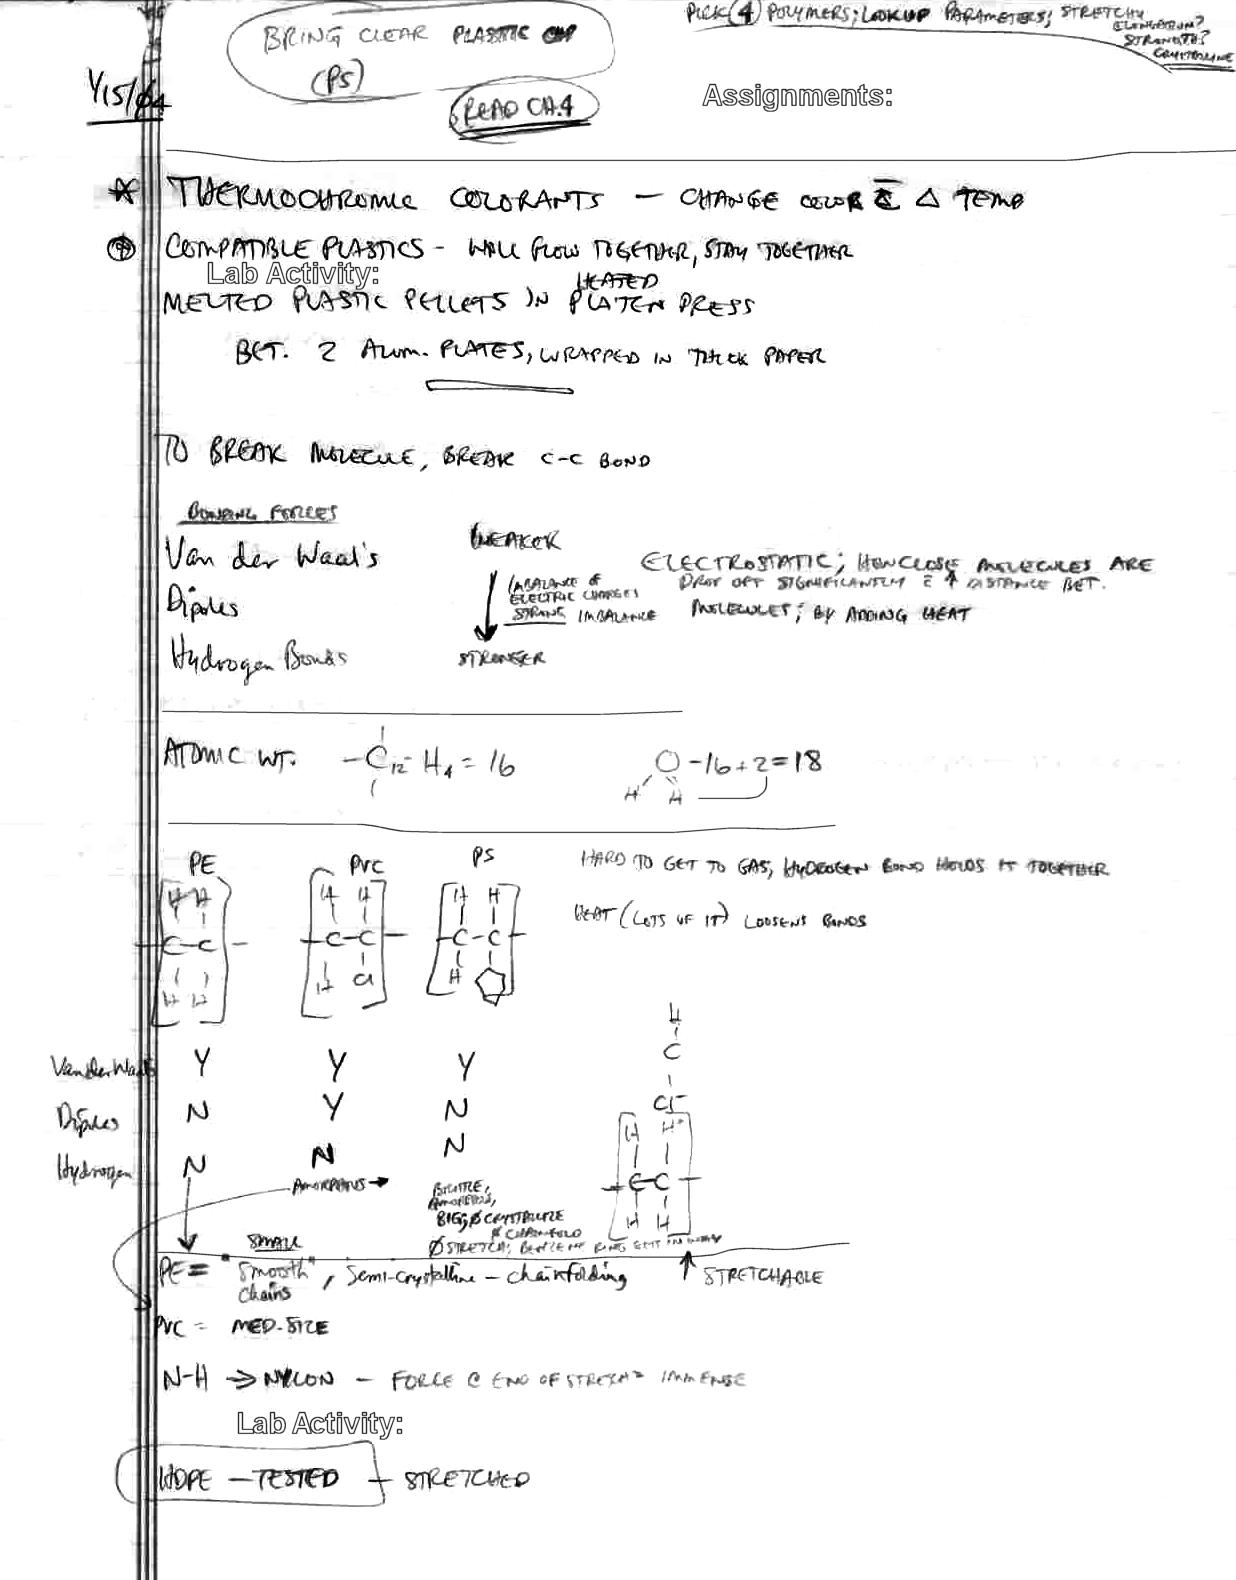 PICK 4 POLYMERS; LOOKUP PARAMETERS; STRETCHY
ELONGATION?
STRENGTH?
CRYSTALLINE
BRING CLEAR PLASTIC CUP
(PS)
READ CH.4
Assignments:
1/15/04
* THERMOCHROMIC COLORANTS — CHANGE COLOR C̄ Δ TEMP
COMPATIBLE PLASTICS - WILL FLOW TOGETHER, STAY TOGETHER
Lab Activity:
HEATED
MELTED PLASTIC PELLETS IN PLATEN PRESS
BET. 2 ALUM. PLATES, WRAPPED IN THICK PAPER
TO BREAK MOLECULE, BREAK C-C BOND
BONDING FORCES
Van der Waal's
Dipoles
Hydrogen Bonds
WEAKER
IMBALANCE OF
ELECTRIC CHARGES
STRONG IMBALANCE
STRONGER
ELECTROSTATIC; HOW CLOSE MOLECULES ARE
DROP OFF SIGNIFICANTLY C̄ ↑ DISTANCE BET.
MOLECULES; BY ADDING HEAT
ATOMIC WT. -C12- H4 = 16
O -16 + 2 = 18
H H
PE PVC PS
HARD TO GET TO GAS, HYDROGEN BOND HOLDS IT TOGETHER
HEAT (LOTS OF IT) LOOSENS BONDS
H H H H H H
C-C C-C C-C
H H H Cl H
H
C
Cl-
H H+
C-C
H H
Van der Waals Y Y Y
Dipoles N Y N
Hydrogen N N N
AMORPHOUS →
BRITTLE,
AMORPHOUS,
BIG, Ø CRYSTALLIZE
Ø CHAINFOLD
Ø STRETCH; BENZENE RING GETS IN WAY
↑ STRETCHABLE
SMALL
PE = "Smooth", Semi-crystalline - chainfolding
chains
PVC = MED-SIZE
N-H → NYLON - FORCE @ END OF STRETCH = IMMENSE
Lab Activity:
HDPE — TESTED — STRETCHED